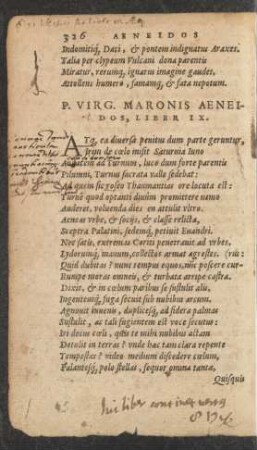 326 AENEIDOS
Indomitiq́; Dacæ, & pontem indignatus Araxes.
Talia per clypeum Vulcani dona parentis
Miratur, rerumq́; ignarus imagine gaudet,
Attollens humero, famamq́; & fata nepotum.
P. VIRG. MARONIS AENEI-
DOS, LIBER IX.
ATq; ea diuersa penitus dum parte geruntur,
Irim de cœlo misit Saturnia Iuno
Audacem ad Turnum, luco dum forte parentis
Pilumni, Turnus sacrata valle sedebat:
Ad quem sic roseo Thaumantias ore locuta est:
Turne quod optanti diuûm promittere nemo
Auderet, voluenda dies en attulit vltro.
Aeneas vrbe, & socijs, & classe relicta,
Sceptra Palatini, sedemq́; petiuit Euandri.
Nec satis, extremas Coriti penetrauit ad vrbes.
Lydorumq́; manum, collectos armat agrestes. (rũs:
Quid dubitas? nunc tempus equos, nũc poscere cur-
Rumpe moras omneis, & turbata arripe castra.
Dixit, & in cœlum paribus se sustulit alis.
Ingentemq́; fuga secuit sub nubibus arcum.
Agnouit iuuenis, duplicesq́; ad sidera palmas
Sustulit, ac tali fugientem est voce secutus:
Iri decus cœli, quis te mihi nubibus actam
Detulit in terras? vnde hæc tam clara repente
Tempestas? video medium discedere cœlum,
Palanteisq́; polo stellas, sequor omina tanta,
Quisquis
hic liber continet versus